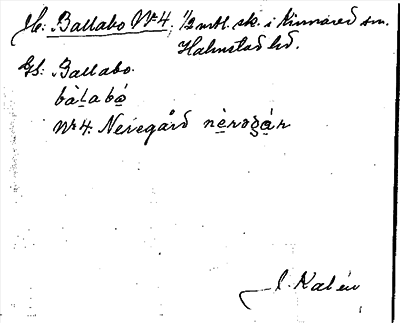 He: Ballabo Nr 4, 1/2 mtl. sk. i Kinnared sn.
Halmstad hd.
Gs: Ballabo.
bàlabó
Nr 4. Neregård nèrəgár
J. Kalén